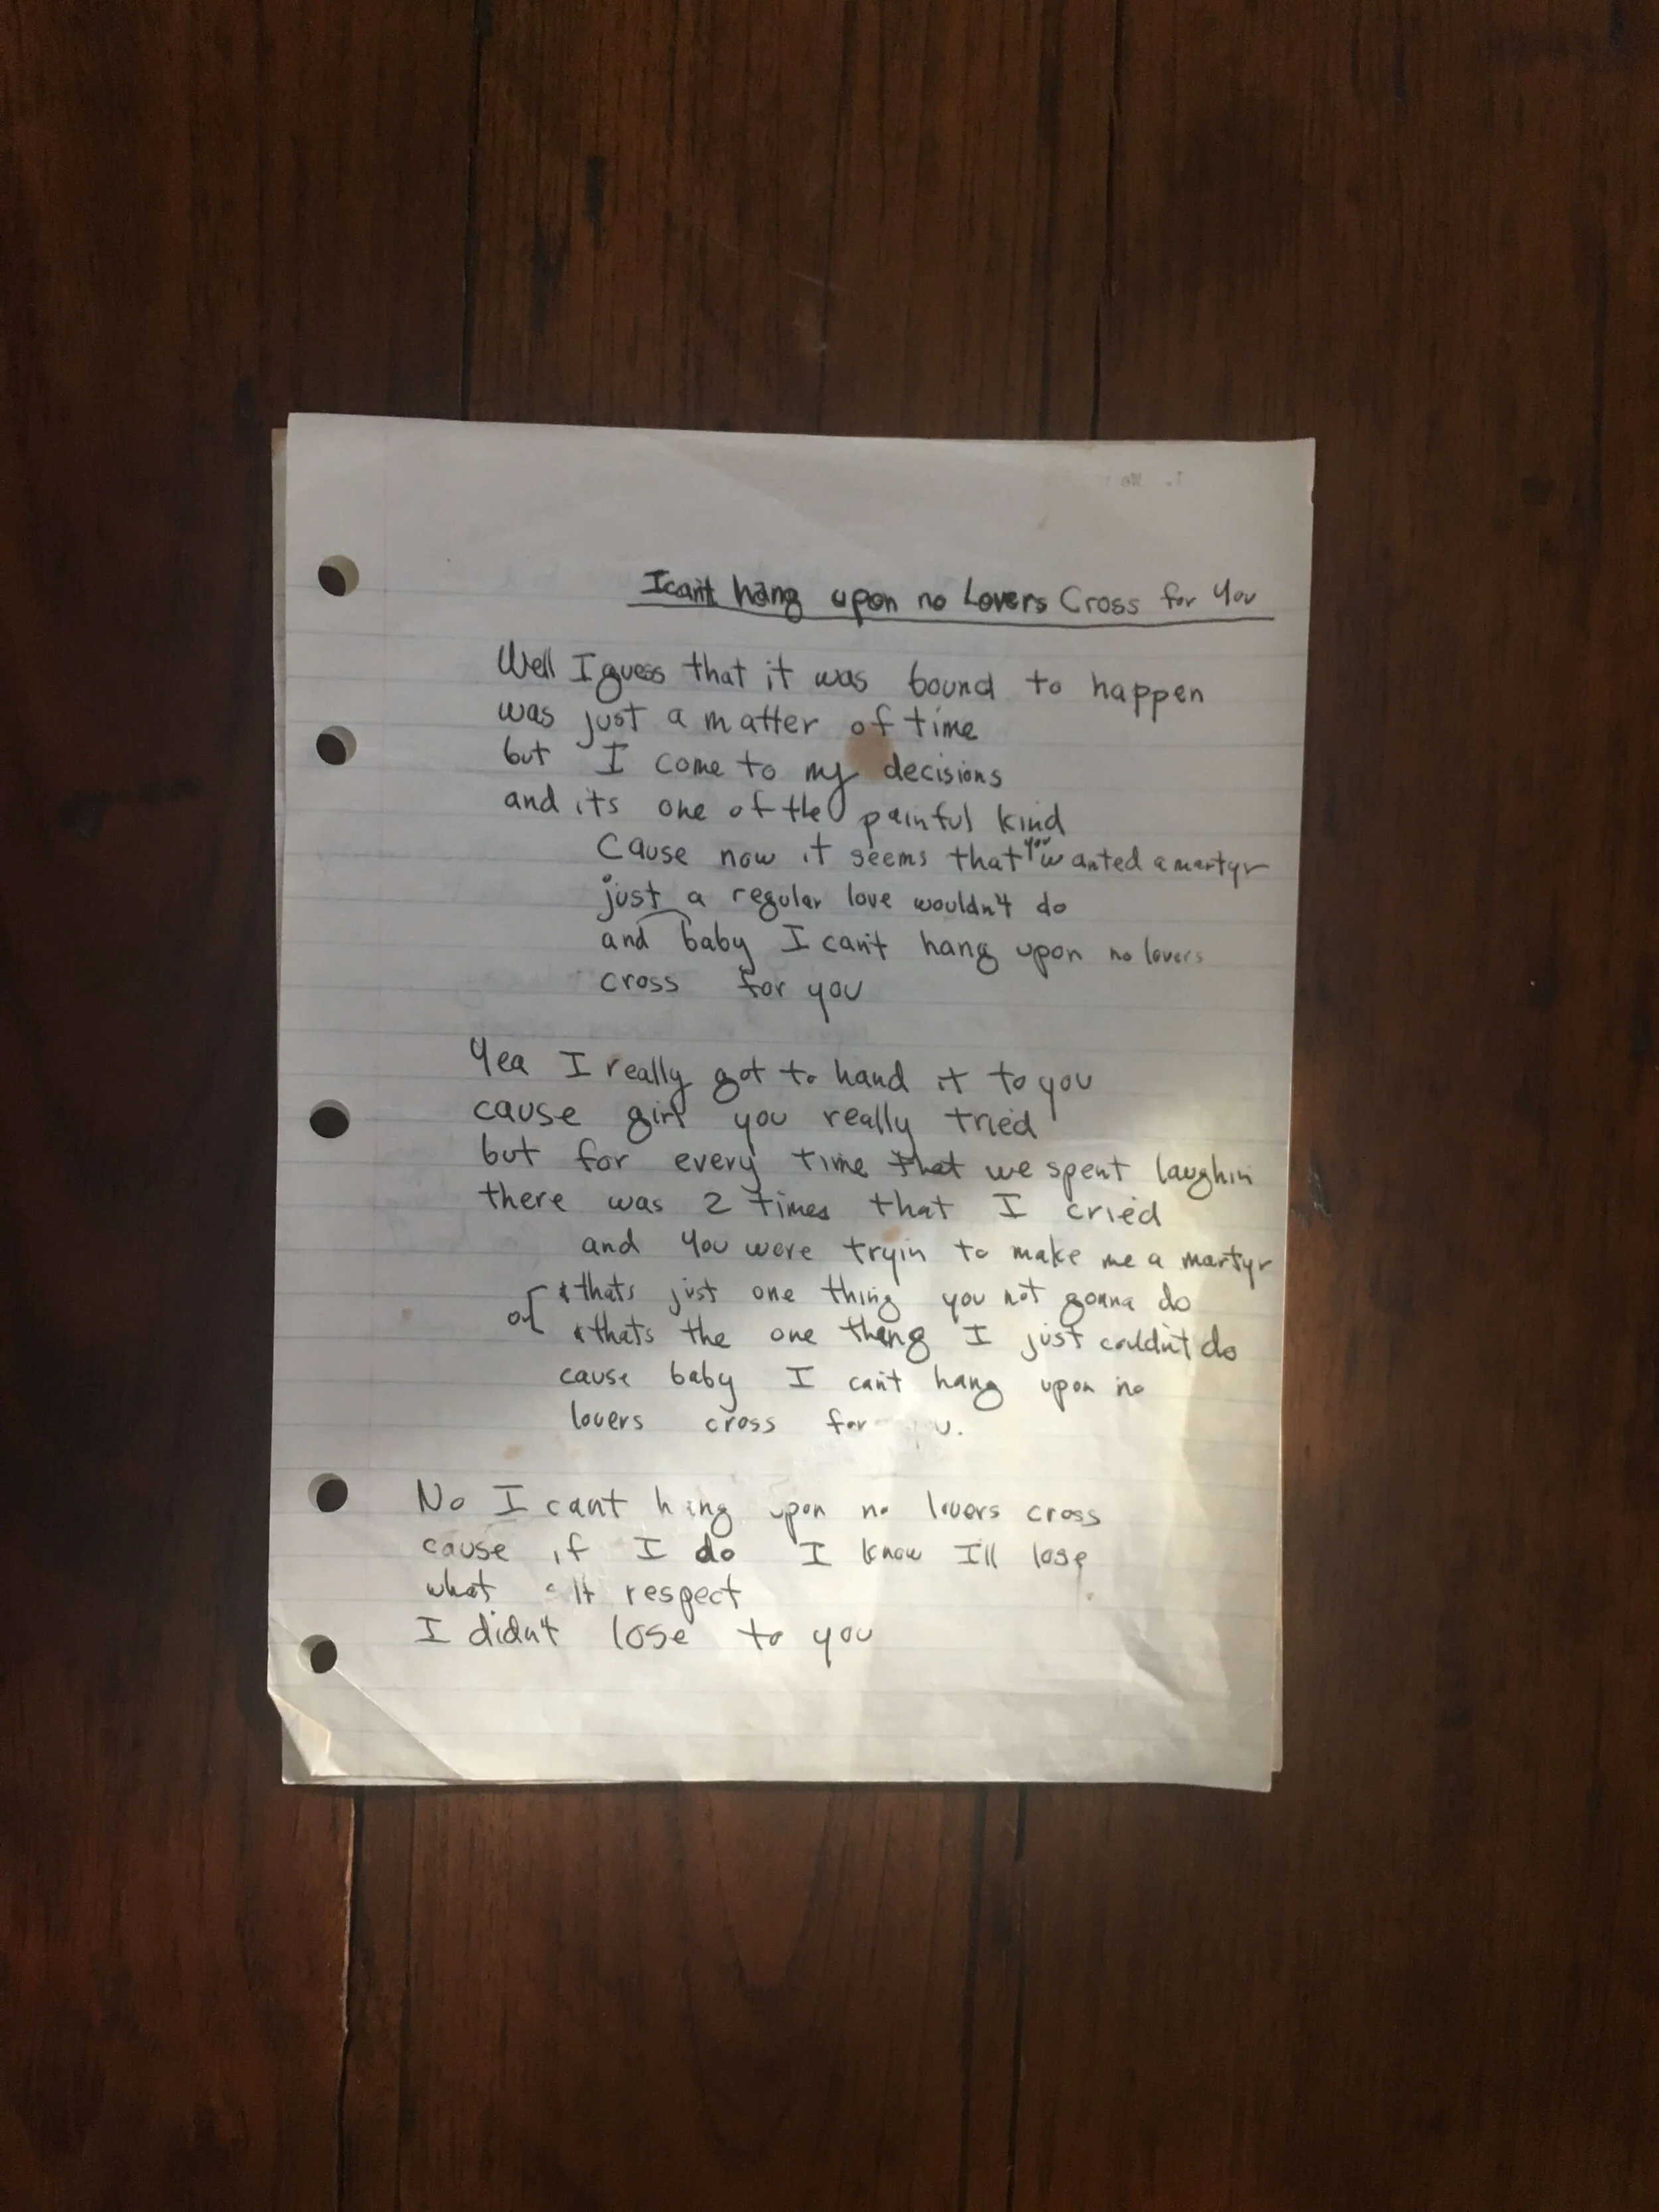 I can't hang upon no Lovers Cross for You
Well I guess that it was bound to happen
was just a matter of time
but I come to my decisions
and its one of the painful kind
Cause now it seems that you wanted a martyr
just a regular love wouldn't do
and baby I can't hang upon no lovers
cross for you
Yea I really got to hand it to you
cause girl you really tried
but for every time that we spent laughin
there was 2 times that I cried
and you were tryin to make me a martyr
thats just one thing you not gonna do
or
thats the one thing I just couldn't do
cause baby I can't hang upon no
lovers cross for
No I cant hang upon no lovers cross
cause if I do I know I'll lose
what respect
I didn't lose to you